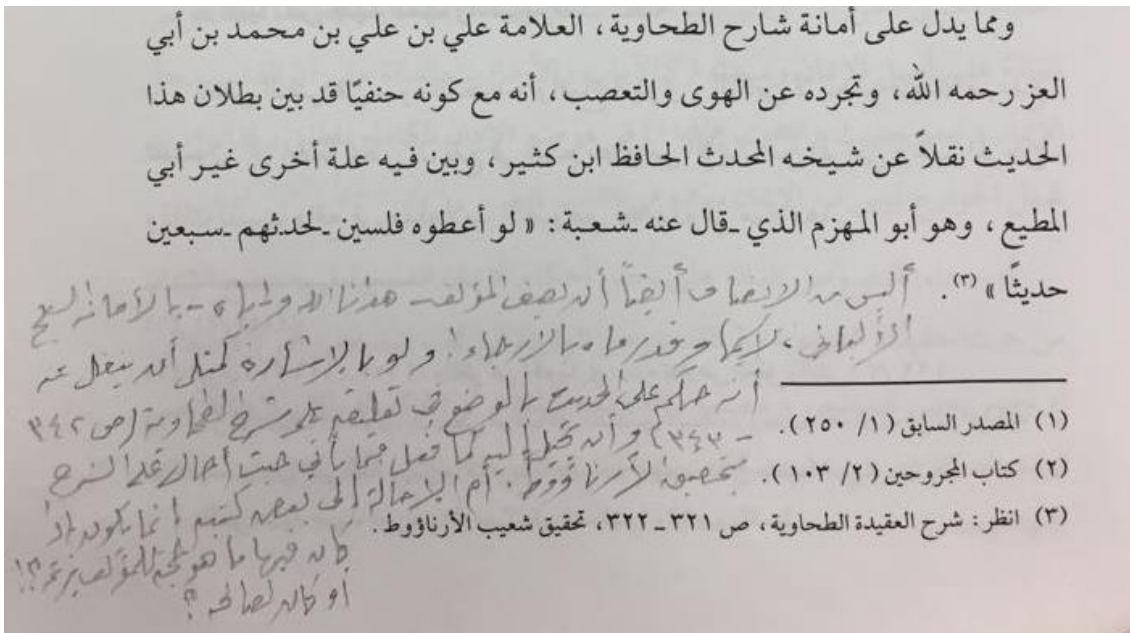 ومما يدل على أمانة شارح الطحاوية، العلامة علي بن علي بن محمد بن أبي
العز رحمه الله، وتجرده عن الهوى والتعصب، أنه مع كونه حنفيًا قد بين بطلان هذا
الحديث نقلاً عن شيخه المحدث الحافظ ابن كثير، وبين فيه علة أخرى غير أبي
المطيع، وهو أبو المهزم الذي ـ قال عنه ـ شعبة: « لو أعطوه فلسين ـ لحدثهم ـ سبعين
حديثًا » (٣).
أليس من الإنصاف أيضًا أن يصف المؤلف - هدانا الله وإياه - بالأمانة الشيخ
الألباني، لاسيما وقد رماه بالإرجاء! ولو بالإشارة كمثل أن ينقل عنه
أنه حكم على الحديث بالوضع في تعليقه على شرح الطحاوية (ص ٣٤٢
- ٣٤٣) وأن يحيل إليه كما فعل فيما يأتي حيث أحال على الشرح
بتحقيق الأرناؤوط فقط. أم الإحالة إلى بعض كتبه إنما يكون إذا
كان فيها ما هو حجة للمؤلف بزعمه؟!
أو كان لصالحه؟
(١) المصدر السابق (١/ ٢٥٠).
(٢) كتاب المجروحين (٢/ ١٠٣).
(٣) انظر: شرح العقيدة الطحاوية، ص ٣٢١ ـ ٣٢٢، تحقيق شعيب الأرناؤوط.